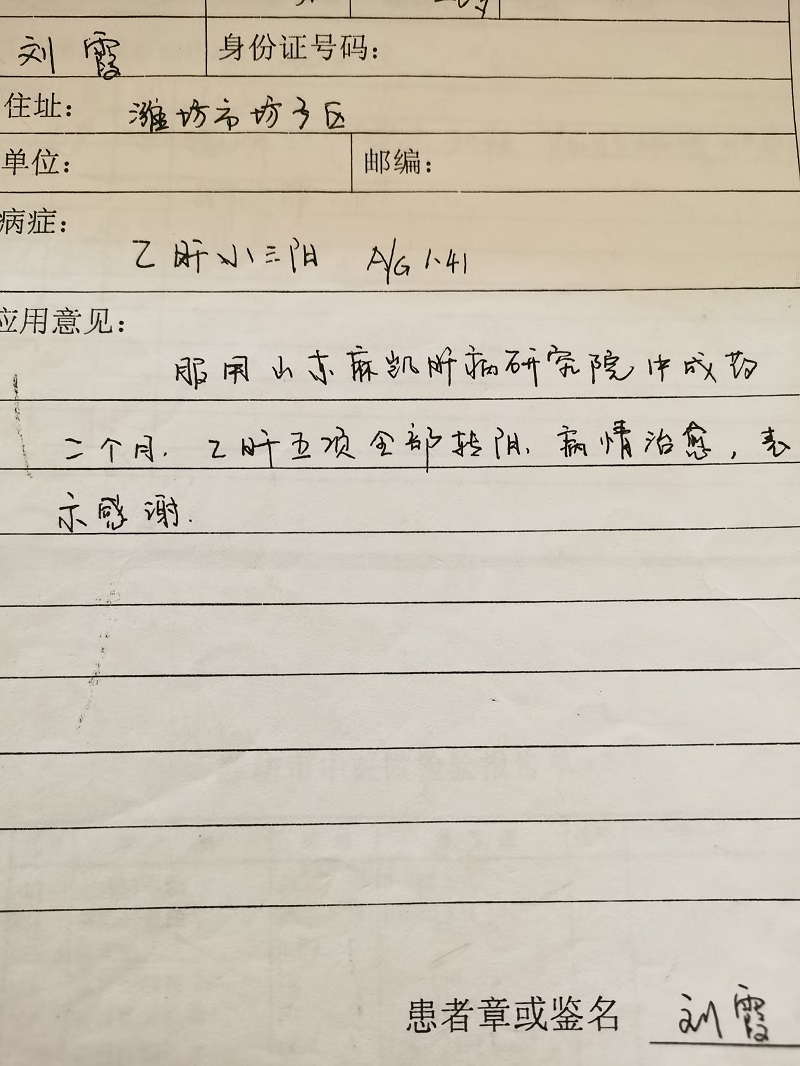 刘霞 身份证号码：
住址： 潍坊市坊子区
单位： 邮编：
病症：
乙肝小三阳 A/G 1.41
应用意见：
服用山东麻凯肝病研究院中成药
二个月. 乙肝五项全部转阴. 病情治愈，表
示感谢.
患者章或鉴名 刘霞